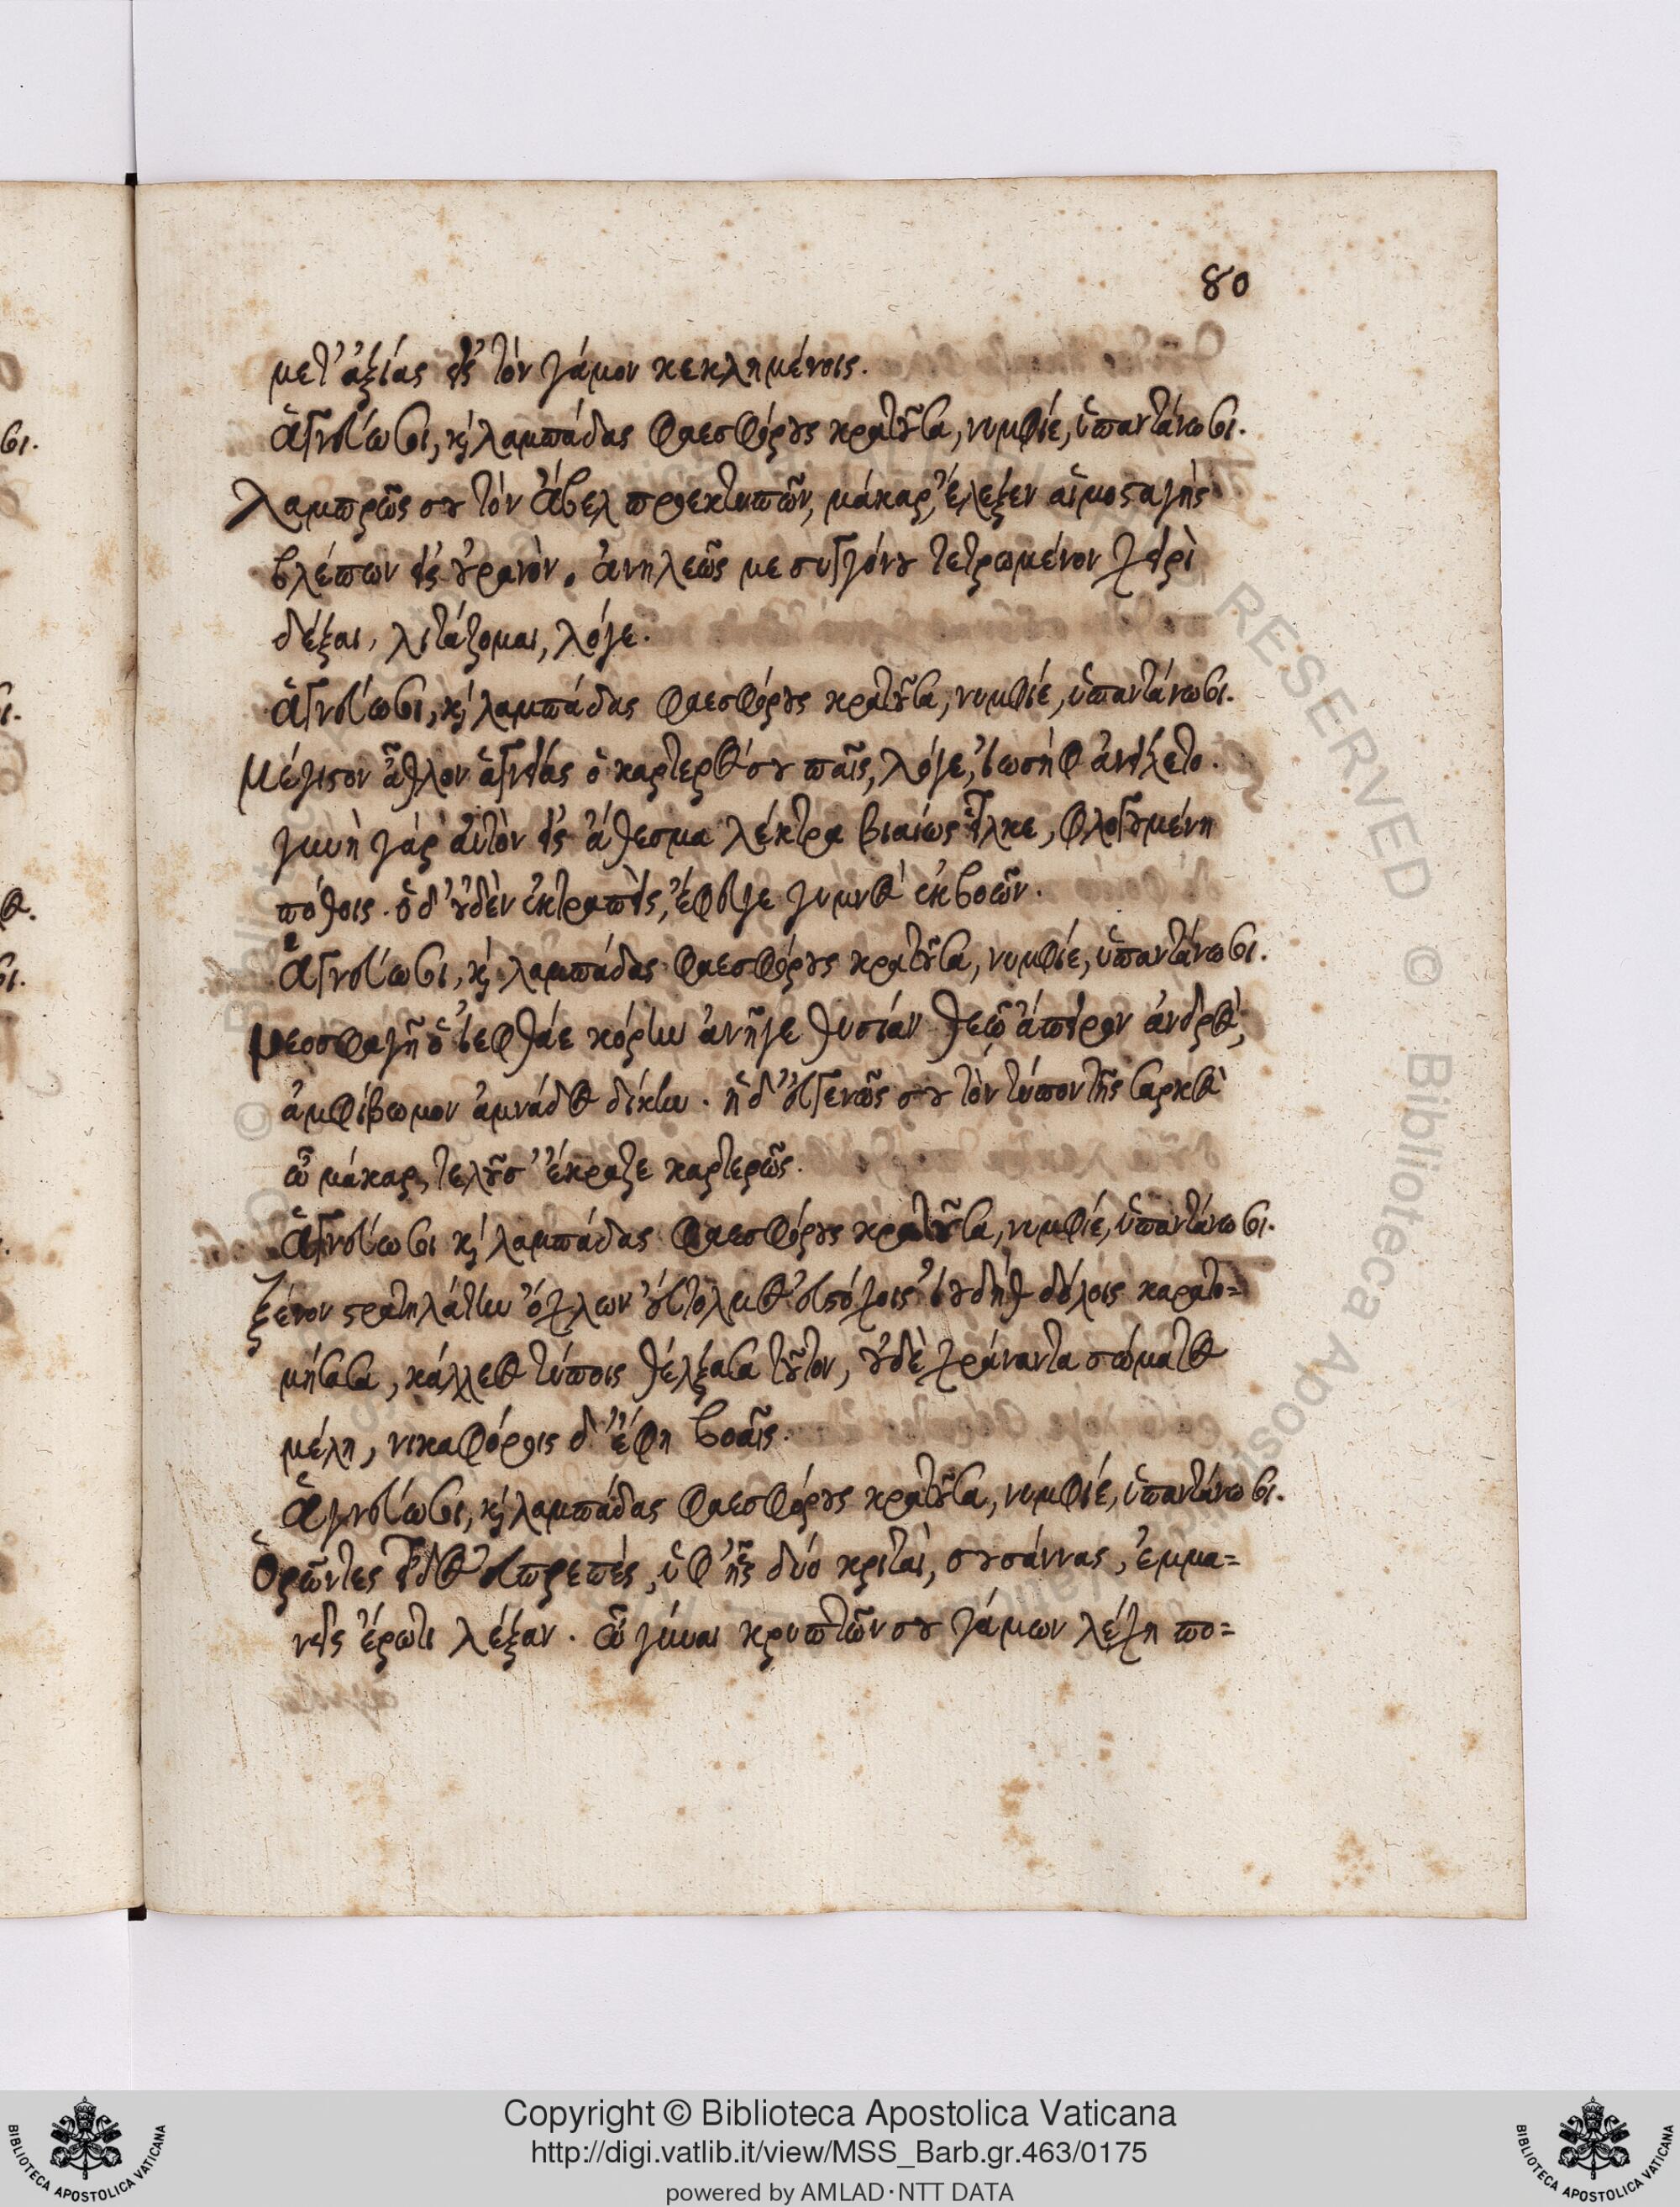 80
μετ' ἀξίας εἰς τὸν γάμον κεκλημένοις.
ἁγνεύω σοι, κ̀ λαμπάδας φαεσφόρους κρατοῦσα, νυμφίε, ὑπαντάνω σοι.
Λαμπρῶς σου τὸν Ἄβελ προεκτυπῶν, μάκαρ, ἔλεξεν αἱμοσταγὴς
βλέπων εἰς οὐρανόν. ἀνηλεῶς με συγγόνου τετρωμένον χειρὶ
δέξαι, λιτάζομαι, λόγε.
ἁγνεύω σοι, κ̀ λαμπάδας φαεσφόρους κρατοῦσα, νυμφίε, ὑπαντάνω σοι.
Μέγιστον ἆθλον ἁγνείας ὁ καρτερός σου παῖς, λόγε, ἰωσὴφ ἀνείχετο.
γυνὴ γὰρ αὐτὸν εἰς ἄθεσμα λέκτρα βιαίως εἷλκε, φλογουμένη
πόθοις. ὁ δ' οὐδὲν ἐκτραπεὶς, ἔφευγε γυμνὸς ἐκβοῶν.
ἁγνεύω σοι, κ̀ λαμπάδας φαεσφόρους κρατοῦσα, νυμφίε, ὑπαντάνω σοι.
Νεοσφαγῆ ὁ ἰεφθάε κόρην ἀνῆγε θυσίαν θεῷ ἀπείρον ἀνδρός,
ἀμφίβωμον ἀμνάδος δίκην. ἡ δ' εὐγενῶς σου τὸν τύπον τῆς σαρκὸς
ὦ μάκαρ, τελοῦσ' ἔκραζε καρτερῶς.
ἁγνεύω σοι κ̀ λαμπάδας φαεσφόρους κρατοῦσα, νυμφίε, ὑπαντάνω σοι.
Ξένον στρατηλάτην ὄχλων εὔτολμος εὐστόχοις ἰουδὴθ δόλοις καρατο=
μήσασα, κάλλεος τύποις θέλξασα τοῦτον, οὐδὲ χράναντα σώματος
μέλη, νικαφόροις δ' ἔφη βοαῖς.
ἁγνεύω σοι, κ̀ λαμπάδας φαεσφόρους κρατοῦσα, νυμφίε, ὑπαντάνω σοι.
Ὁρῶντες εἶδος εὐπρεπὲς, ὑφ' ἧς δύο κριταὶ, σουσάννας, ἐμμα=
νεῖς ἔρωτι λέξαν. ὦ γύναι κρυπτῶν σου γάμων λέχη πο=
Copyright © Biblioteca Apostolica Vaticana
http://digi.vatlib.it/view/MSS_Barb.gr.463/0175
powered by AMLAD·NTT DATA
BIBLIOTECA APOSTOLICA VATICANA
BIBLIOTECA APOSTOLICA VATICANA